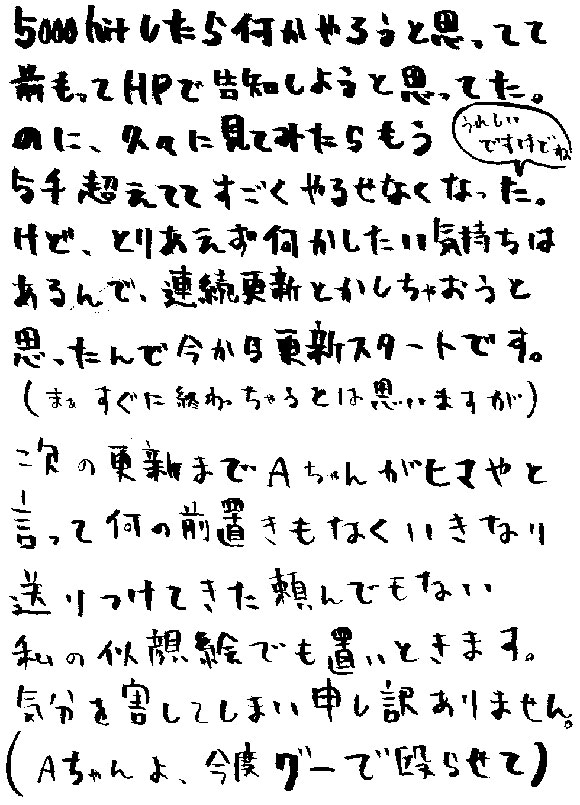 5000hitしたら何かやろうと思ってて
前もってHPで告知しようと思ってた。
のに、久々に見てみたらもう
うれしい
ですけどね
5千超えててすごくやるせなくなった。
けど、とりあえず何かしたい気持ちは
あるんで、連続更新とかしちゃおうと
思ったんで今から更新スタートです。
(まぁすぐに終わっちゃうとは思いますが)
次の更新までAちゃんがヒマやと
言って何の前置きもなくいきなり
送りつけてきた頼んでもない
私の似顔絵でも置いときます。
気分を害してしまい申し訳ありません。
(Aちゃんよ、今度グーで殴らせて)